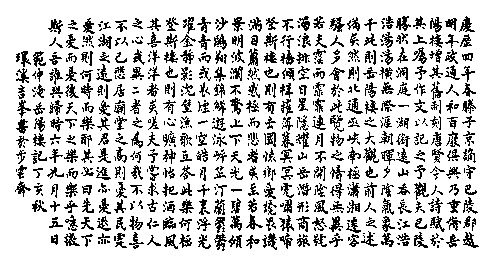 慶曆四年春滕子京謫守巴陵郡越
明年政通人和百廢俱興乃重修岳
陽樓增其舊制刻唐賢今人詩賦於
其上屬予作文以記之予觀夫巴陵
勝狀在洞庭一湖銜遠山吞長江浩
浩湯湯橫無際涯朝暉夕陰氣象萬
千此則岳陽樓之大觀也前人之述
備矣然則北通巫峽南極瀟湘遷客
騷人多會於此覽物之情得無異乎
若夫霪雨霏霏連月不開陰風怒號
濁浪排空日星隱耀山岳潛形商旅
不行檣傾楫摧薄暮冥冥虎嘯猿啼
登斯樓也則有去國懷鄉憂讒畏譏
滿目蕭然感極而悲者矣至若春和
景明波瀾不驚上下天光一碧萬頃
沙鷗翔集錦鱗游泳岸芷汀蘭鬱鬱
青青而或長煙一空皓月千里浮光
耀金靜影沉璧漁歌互答此樂何極
登斯樓也則有心曠神怡把酒臨風
其喜洋洋者矣嗟夫予嘗求古仁人
之心或異二者之為何哉不以物喜
不以己悲居廟堂之高則憂其民處
江湖之遠則憂其君是進亦憂退亦
憂然則何時而樂耶其必曰先天下
之憂而憂後天下之樂而樂乎噫微
斯人吾誰與歸時六年九月十五日
范仲淹岳陽樓記丁亥秋
環溪言峯書於步雲齋